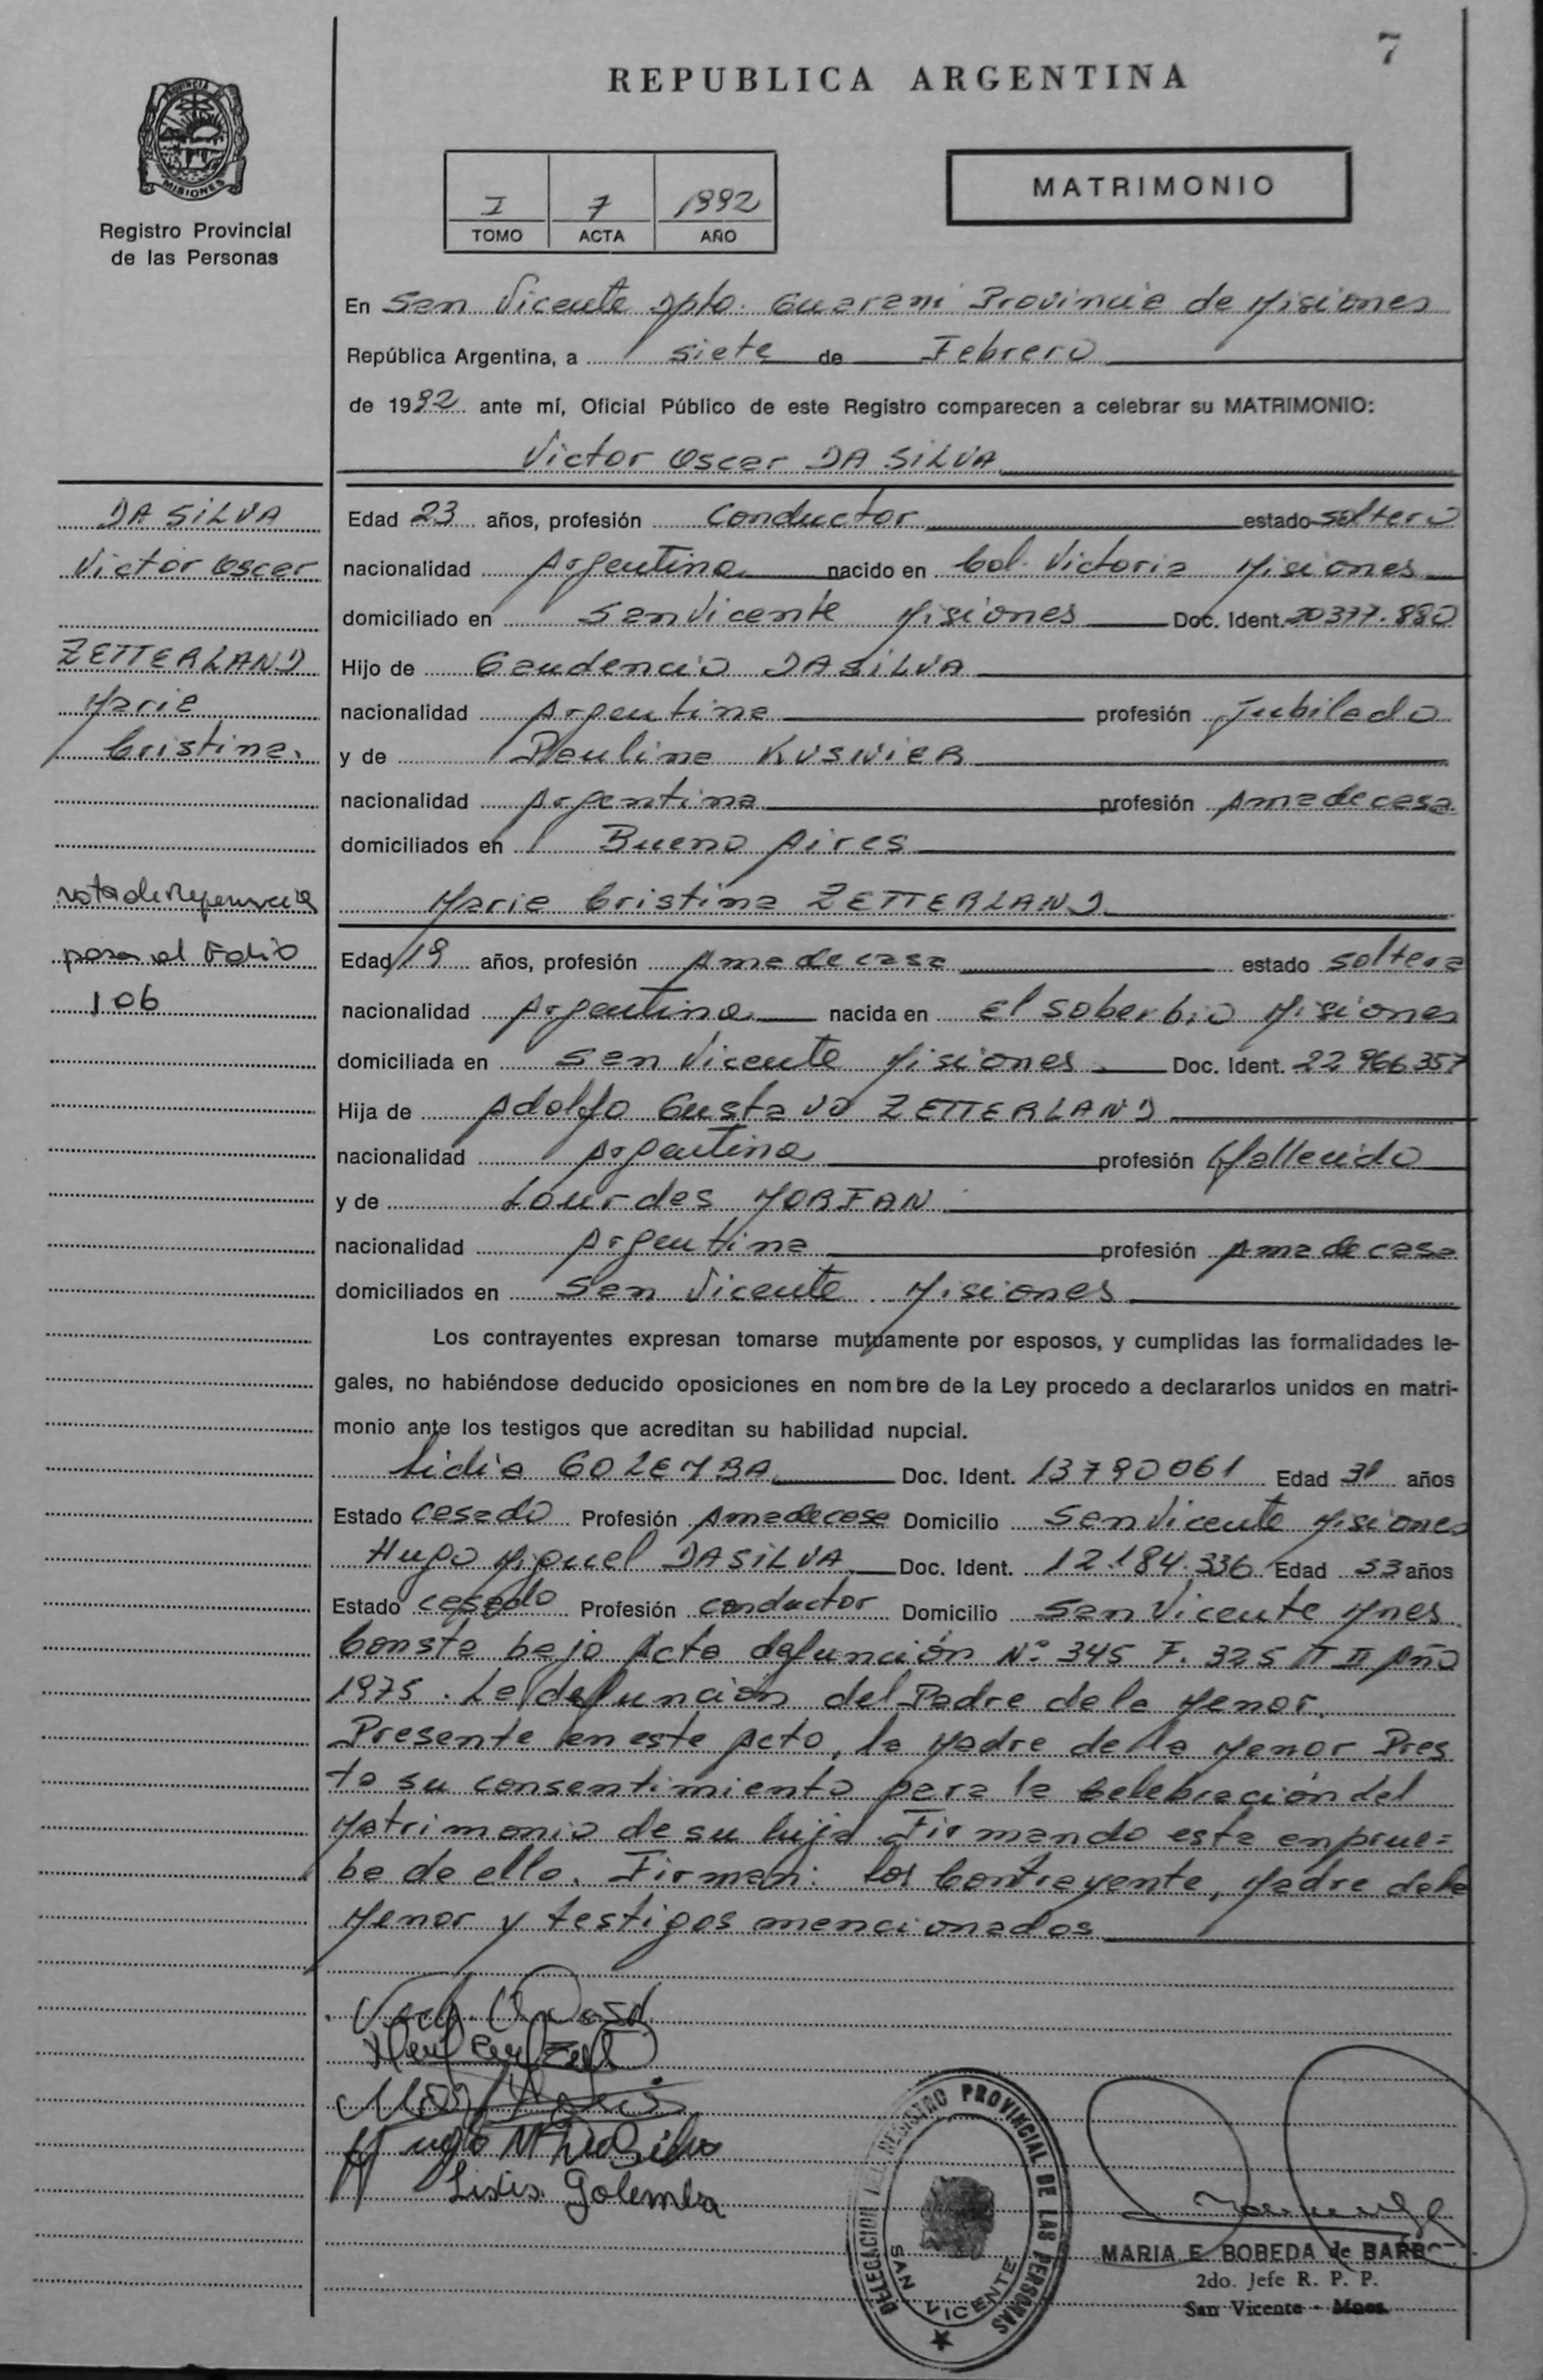 7
REPUBLICA ARGENTINA
PROVINCIA DE
MISIONES
Registro Provincial
de las Personas
I 7 1992
TOMO ACTA AÑO
MATRIMONIO
En San Vicente Dpto. Guarani Provincia de Misiones
República Argentina, a siete de Febrero
de 1992 ante mí, Oficial Público de este Registro comparecen a celebrar su MATRIMONIO:
Victor Oscar DA SILVA
DA SILVA
Victor Oscar
ZETTERLAND
Maria
Cristina.
Nota de Referencia
pasa al Folio
106
Edad 23 años, profesión Conductor estado soltero
nacionalidad Argentina nacido en Col. Victoria Misiones
domiciliado en San Vicente Misiones Doc. Ident. 20377.880
Hijo de Gaudencio DA SILVA
nacionalidad Argentina profesión Jubilado
y de Paulina KUSNIER
nacionalidad Argentina profesión Ama de casa
domiciliados en Bueno Aires
Maria Cristina ZETTERLAND
Edad 19 años, profesión Ama de casa estado soltera
nacionalidad Argentina nacida en El Soberbio Misiones
domiciliada en San Vicente Misiones Doc. Ident. 22 966.357
Hija de Adolfo Gustavo ZETTERLAND
nacionalidad Argentina profesión fallecido
y de Lourdes MORFAN
nacionalidad Argentina profesión Ama de casa
domiciliados en San Vicente Misiones
Los contrayentes expresan tomarse mutuamente por esposos, y cumplidas las formalidades le-
gales, no habiéndose deducido oposiciones en nombre de la Ley procedo a declararlos unidos en matri-
monio ante los testigos que acreditan su habilidad nupcial.
Lidia GOLEMBA Doc. Ident. 13790061 Edad 31 años
Estado casado Profesión Ama de casa Domicilio San Vicente Misiones
Hugo Miguel DA SILVA Doc. Ident. 12.184.336 Edad 33 años
Estado casado Profesión conductor Domicilio San Vicente Mnes
Consta bajo Acta defunción Nº 345 F. 325 T II Año
1975. La defunción del Padre de la Menor.
Presente en este Acto, la Madre de la Menor Pres
ta su consentimiento para la celebración del
Matrimonio de su hija Firmando esta en prue=
ba de ello. Firman: los Contrayente, Madre de la
Menor y testigos mencionados
Hugo M DaSilva
Lidia Golemba
DELEGACION DEL REGISTRO PROVINCIAL DE LAS PERSONAS
SAN VICENTE
MARIA E. BOBEDA de BARBO
2do. Jefe R. P. P.
San Vicente - Mnes.